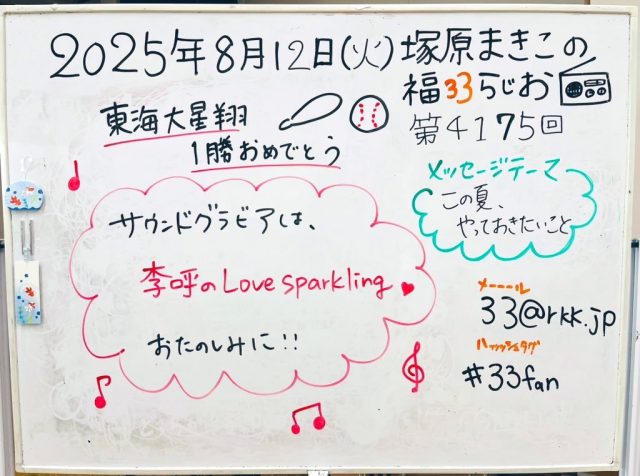 2025年8月12日(火)塚原まきこの
福33らじお
第4175回
東海大星翔
1勝おめでとう
メッセージテーマ
この夏、
やっておきたいこと
サウンドグラビアは、
李呼のLove sparkling
おたのしみに!!
メール
33@rkk.jp
ハッシュタグ
#33fan